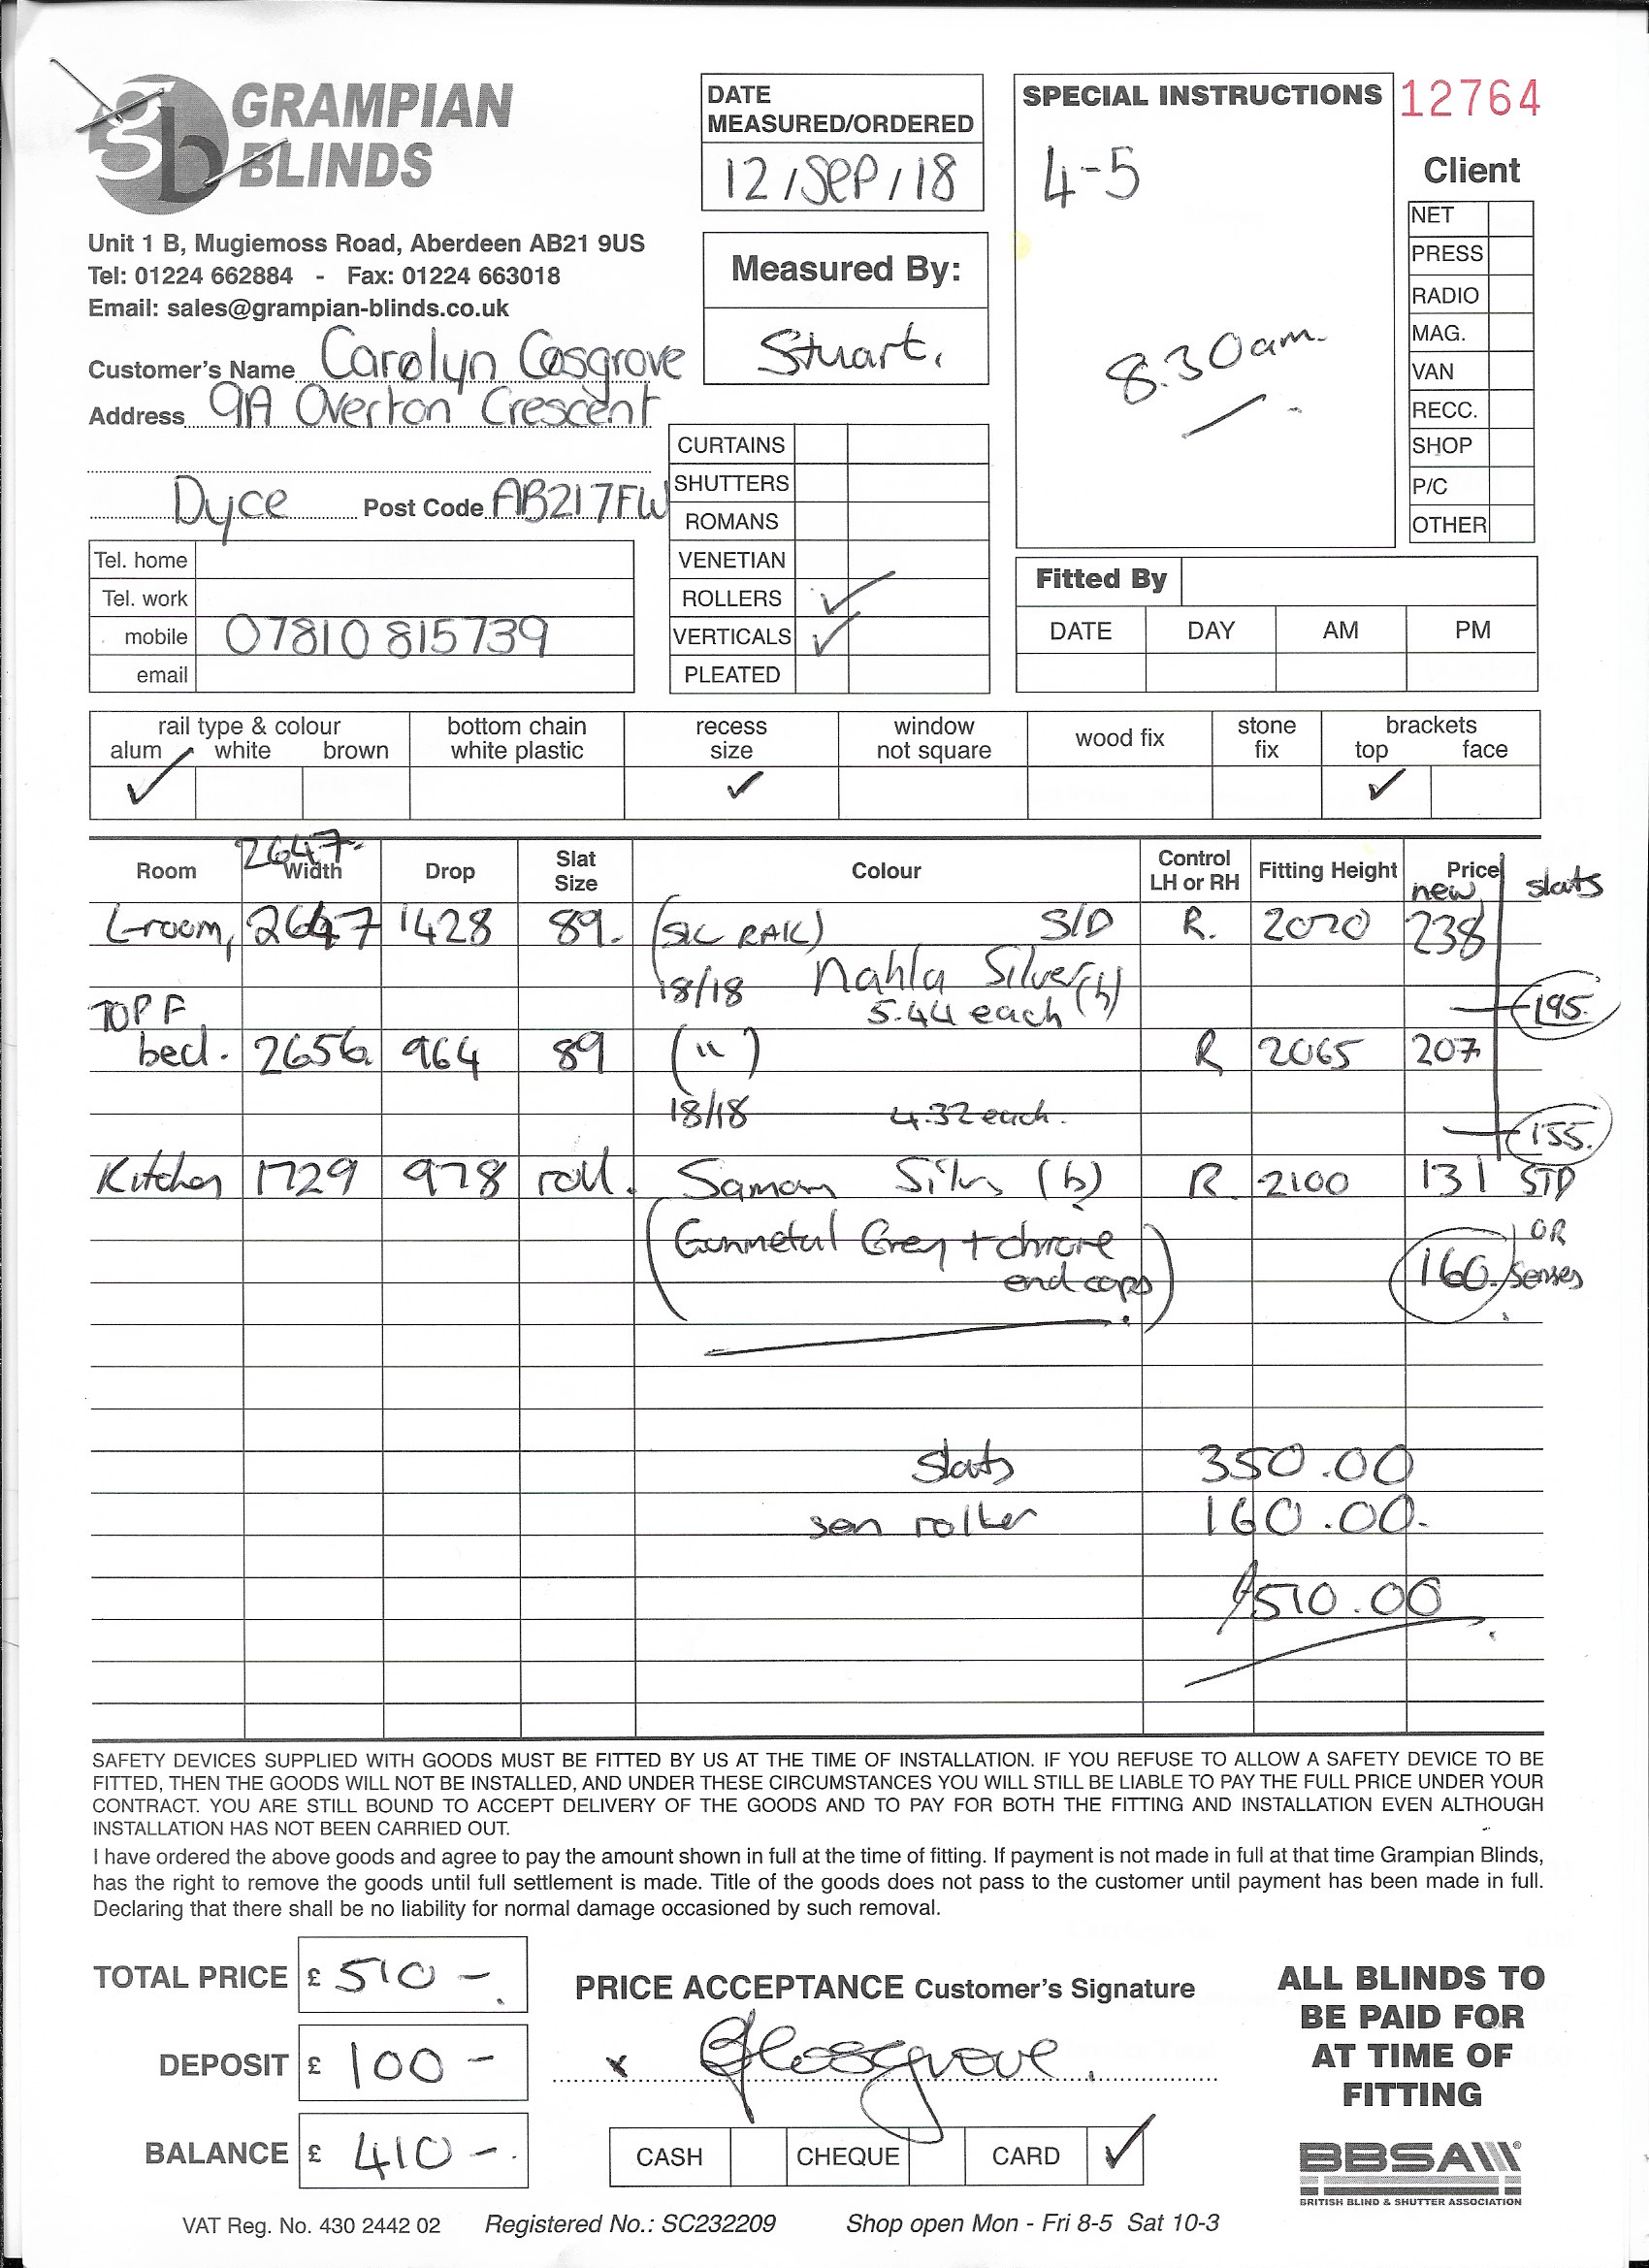 GRAMPIAN
BLINDS
gb
Unit 1 B, Mugiemoss Road, Aberdeen AB21 9US
Tel: 01224 662884 - Fax: 01224 663018
Email: sales@grampian-blinds.co.uk
Customer's Name Carolyn Cosgrove
Address 9A Overton Crescent
Dyce Post Code AB217FW
Tel. home
Tel. work
mobile 07810 815739
email
DATE
MEASURED/ORDERED
12/SEP/18
Measured By:
Stuart.
CURTAINS
SHUTTERS
ROMANS
VENETIAN
ROLLERS ✓
VERTICALS ✓
PLEATED
SPECIAL INSTRUCTIONS
4-5
8.30am.
12764
Client
NET
PRESS
RADIO
MAG.
VAN
RECC.
SHOP
P/C
OTHER
Fitted By
DATE DAY AM PM
rail type & colour bottom chain recess window wood fix stone brackets
alum white brown white plastic size not square fix top face
✓ ✓ ✓
2647
Room Width Drop Slat Size Colour Control LH or RH Fitting Height Price
new slats
L-room, 2647 1428 89. (SLC RAIL) S/D R. 2020 238
18/18 Nahla Silver (b)
5.44 each 195.
TOP F
bed. 2656. 964 89 (") R 2065 207
18/18 4.32 each. 155.
Kitchen 1729 978 roll. Samoan Silver (b) R. 2100 131 STD
(Gunmetal Grey + chrome OR
end caps) 160. senses
slats 350.00
sen roller 160.00.
£510.00
SAFETY DEVICES SUPPLIED WITH GOODS MUST BE FITTED BY US AT THE TIME OF INSTALLATION. IF YOU REFUSE TO ALLOW A SAFETY DEVICE TO BE
FITTED, THEN THE GOODS WILL NOT BE INSTALLED, AND UNDER THESE CIRCUMSTANCES YOU WILL STILL BE LIABLE TO PAY THE FULL PRICE UNDER YOUR
CONTRACT. YOU ARE STILL BOUND TO ACCEPT DELIVERY OF THE GOODS AND TO PAY FOR BOTH THE FITTING AND INSTALLATION EVEN ALTHOUGH
INSTALLATION HAS NOT BEEN CARRIED OUT.
I have ordered the above goods and agree to pay the amount shown in full at the time of fitting. If payment is not made in full at that time Grampian Blinds,
has the right to remove the goods until full settlement is made. Title of the goods does not pass to the customer until payment has been made in full.
Declaring that there shall be no liability for normal damage occasioned by such removal.
TOTAL PRICE £ 510 -
DEPOSIT £ 100 -
BALANCE £ 410 -.
PRICE ACCEPTANCE Customer's Signature
x Cosgrove
CASH CHEQUE CARD ✓
ALL BLINDS TO
BE PAID FOR
AT TIME OF
FITTING
BBSA
BRITISH BLIND & SHUTTER ASSOCIATION
VAT Reg. No. 430 2442 02 Registered No.: SC232209 Shop open Mon - Fri 8-5 Sat 10-3